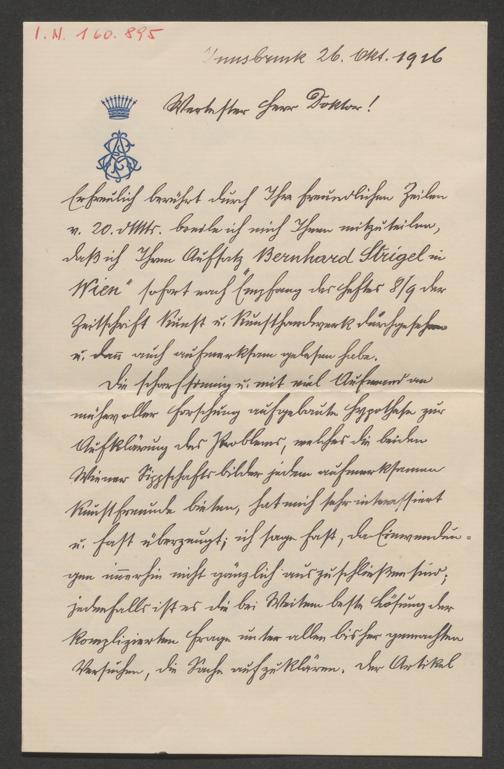 I.N. 160.895
Innsbruck 26. Okt. 1916
Wertester Herr Doktor!
Erfreulich berührt durch Ihre freundlichen Zeilen
v. 20. d. Mts. beeile ich mich Ihnen mitzuteilen,
daß ich Ihren Aufsatz Bernhard Strigel in
Wien" sofort nach Empfang des Heftes 8/9 der
Zeitschrift Kunst u. Kunsthandwerk durchgesehen
u. dann auch aufmerksam gelesen habe.
Die scharfsinnig u. mit viel Aufwand an
mühevoller Forschung aufgebaute Hypothese zur
Aufklärung des Problems, welches die beiden
Wiener Sippschaftsbilder jedem aufmerksamen
Kunstfreunde bieten, hat mich sehr interessiert
u. fast überzeugt; ich sage fast, da Einwendun-
gen immerhin nicht gänzlich auszuschließen sind;
jedenfalls ist es die bei Weitem beste Lösung der
komplizierten Frage unter allen bisher gemachten
Versuchen, die Sache aufzuklären. Der Artikel